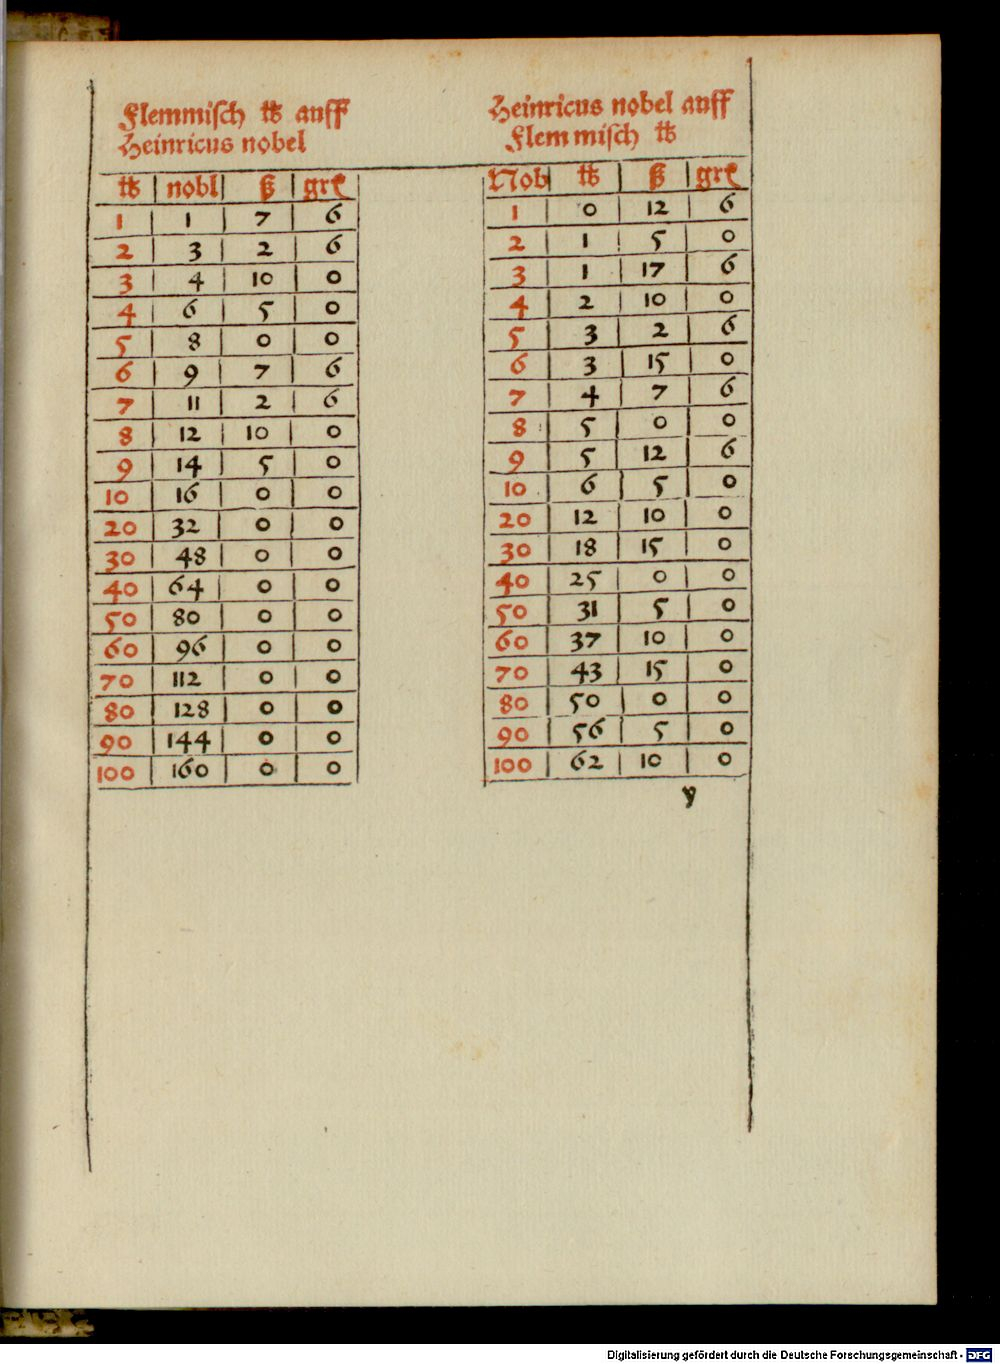 Flemmisch ℔ auff
Heinricus nobel
℔ nobl ß grẜ
1 1 7 6
2 3 2 6
3 4 10 0
4 6 5 0
5 8 0 0
6 9 7 6
7 11 2 6
8 12 10 0
9 14 5 0
10 16 0 0
20 32 0 0
30 48 0 0
40 64 0 0
50 80 0 0
60 96 0 0
70 112 0 0
80 128 0 0
90 144 0 0
100 160 0 0
Heinricus nobel auff
Flemmisch ℔
Nob ℔ ß grẜ
1 0 12 6
2 1 5 0
3 1 17 6
4 2 10 0
5 3 2 6
6 3 15 0
7 4 7 6
8 5 0 0
9 5 12 6
10 6 5 0
20 12 10 0
30 18 15 0
40 25 0 0
50 31 5 0
60 37 10 0
70 43 15 0
80 50 0 0
90 56 5 0
100 62 10 0
y
Digitalisierung gefördert durch die Deutsche Forschungsgemeinschaft - DFG